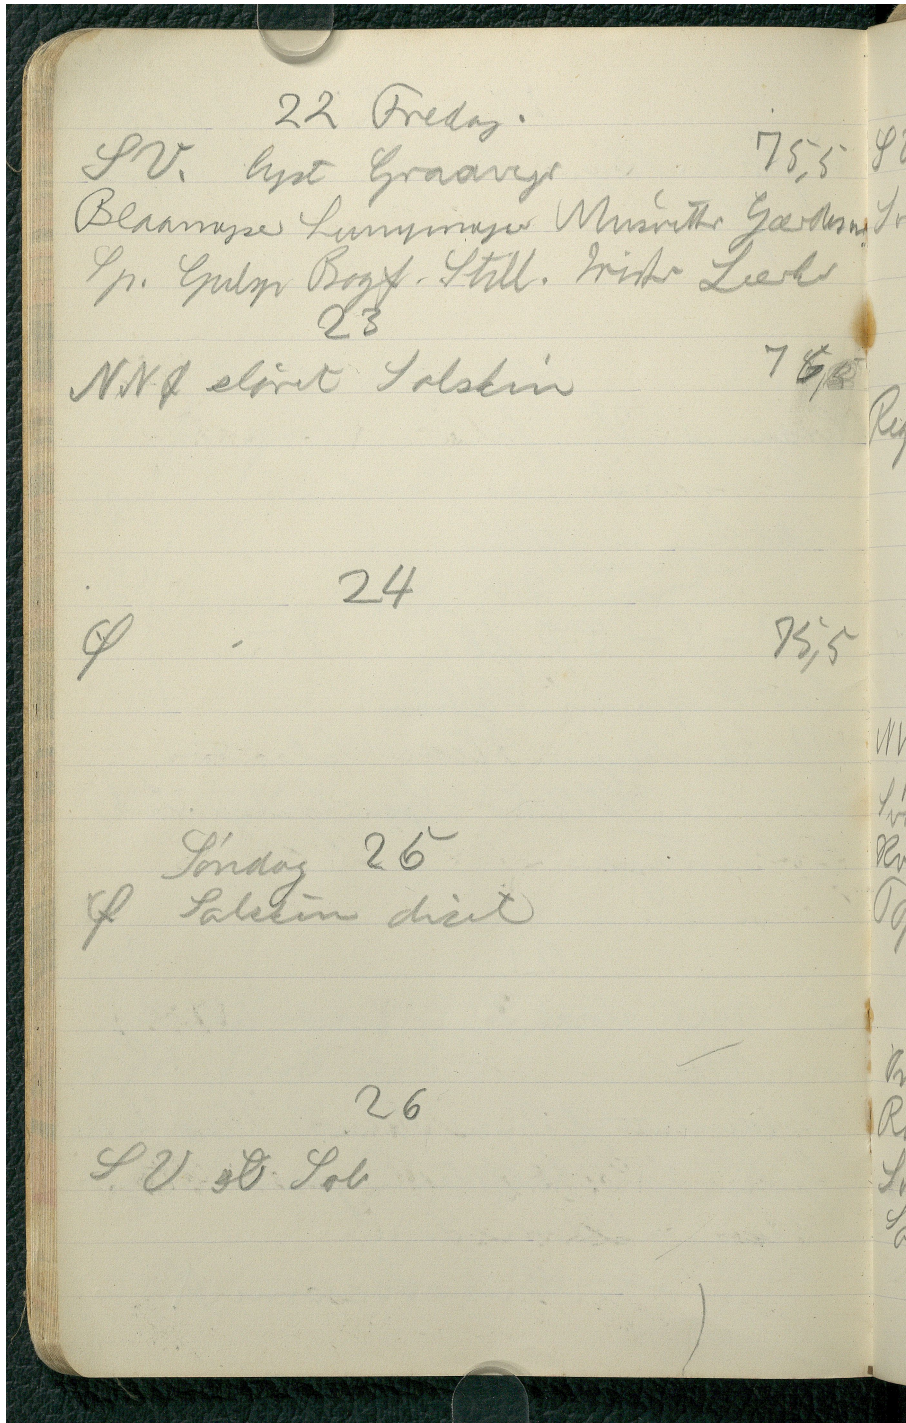 22 Fredag.
SV. lyst Graavejr 75,5
Blaamejse Sumpmejse Musvitte Gærdesm
Sp. Gulsp Bogf. Still. Irisk Lærke
23
NNØ sløret Solskin 76,5
24
Ø 75,5
Søndag 25
Ø Solskin diset
26
SV Sol